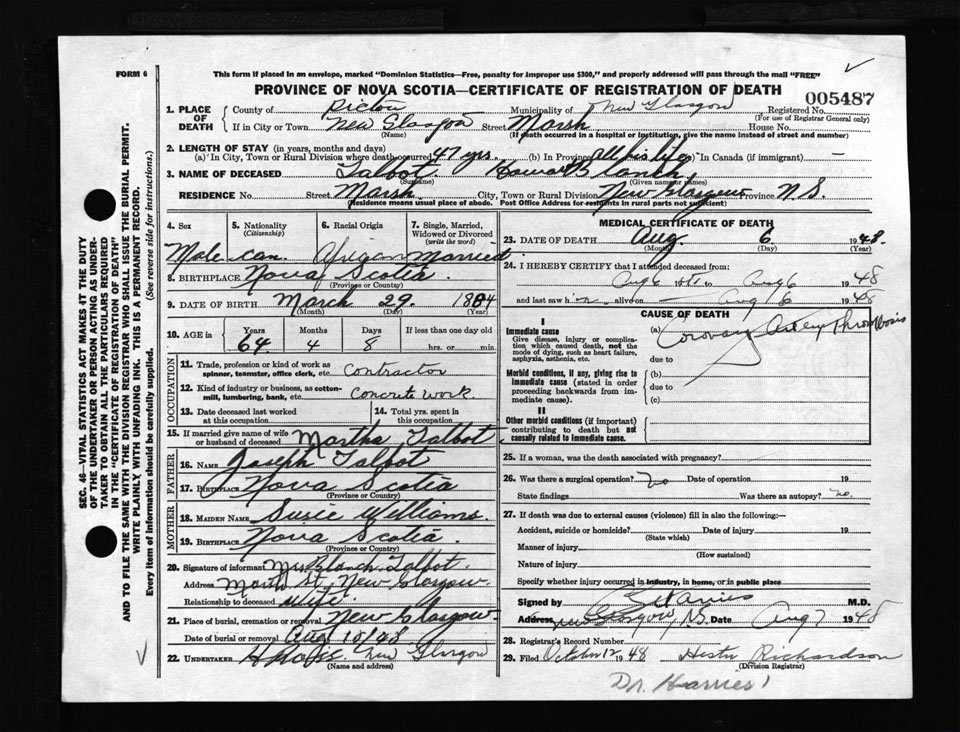 FORM 6
This form if placed in an envelope, marked "Dominion Statistics—Free, penalty for improper use $300," and properly addressed will pass through the mail "FREE"
PROVINCE OF NOVA SCOTIA—CERTIFICATE OF REGISTRATION OF DEATH
005487
1. PLACE OF DEATH
County of Pictou Municipality of New Glasgow Registered No.
(For use of Registrar General only)
If in City or Town New Glasgow Street Marsh House No.
(Name) (If death occurred in a hospital or institution, give the name instead of street and number)
2. LENGTH OF STAY (in years, months and days)
(a) In City, Town or Rural Division where death occurred 47 yrs. (b) In Province All his life (c) In Canada (if immigrant) —
3. NAME OF DECEASED Talbot. Howard Blanch.
(Surname) (Given name or names)
RESIDENCE No. Street Marsh City, Town or Rural Division New Glasgow Province N.S.
(Residence means usual place of abode. Post Office Address for residents in rural parts not sufficient)
4. Sex
Male
5. Nationality
(Citizenship)
Can.
6. Racial Origin
African
7. Single, Married, Widowed or Divorced
(write the word)
Married
8. BIRTHPLACE Nova Scotia.
(Province or Country)
9. DATE OF BIRTH March 29. 1884
(Month) (Day) (Year)
10. AGE in Years Months Days If less than one day old
64 4 8 hrs. or min.
OCCUPATION
11. Trade, profession or kind of work as spinner, teamster, office clerk, etc. Contractor
12. Kind of industry or business, as cotton-mill, lumbering, bank, etc. Concrete Work.
13. Date deceased last worked at this occupation
14. Total yrs. spent in this occupation
15. If married give name of wife or husband of deceased Martha Talbot
FATHER
16. NAME Joseph Talbot
17. BIRTHPLACE Nova Scotia
(Province or Country)
MOTHER
18. MAIDEN NAME Susie Williams.
19. BIRTHPLACE Nova Scotia
(Province or Country)
20. Signature of informant Mrs Blanch Talbot.
Address Marsh St, New Glasgow.
Relationship to deceased Wife.
21. Place of burial, cremation or removal New Glasgow
Date of burial or removal Aug 10/48
22. UNDERTAKER New Glasgow
(Name and address)
MEDICAL CERTIFICATE OF DEATH
23. DATE OF DEATH Aug 6 1948.
(Month) (Day) (Year)
24. I HEREBY CERTIFY that I attended deceased from:
Aug 6 to Aug 6 1948
and last saw h alive on — Aug 6 1948
CAUSE OF DEATH
I
Immediate cause
Give disease, injury or complication which caused death, not the mode of dying, such as heart failure, asphyxia, asthenia, etc.
(a) Coronary Artery Thrombosis
due to
Morbid conditions, if any, giving rise to immediate cause (stated in order proceeding backwards from immediate cause).
(b)
due to
(c)
II
Other morbid conditions (if important) contributing to death but not causally related to immediate cause.
25. If a woman, was the death associated with pregnancy?
26. Was there a surgical operation? No Date of operation 19
State findings Was there an autopsy? No.
27. If death was due to external causes (violence) fill in also the following:—
Accident, suicide or homicide? Date of injury 19
(State which)
Manner of injury
(How sustained)
Nature of injury
Specify whether injury occurred in industry, in home, or in public place
Signed by Harries M.D.
Address New Glasgow, N.S. Date Aug 7 1948
28. Registrar's Record Number
29. Filed October 12 1948 Hester Richardson
(Division Registrar)
Dr. Harries
SEC. 46—VITAL STATISTICS ACT MAKES IT THE DUTY
OF THE UNDERTAKER OR PERSON ACTING AS UNDER-
TAKER TO OBTAIN ALL THE PARTICULARS REQUIRED
IN THE "CERTIFICATE OF REGISTRATION OF DEATH"
AND TO FILE THE SAME WITH THE DIVISION REGISTRAR WHO SHALL ISSUE THE BURIAL PERMIT.
WRITE PLAINLY, WITH UNFADING INK. THIS IS A PERMANENT RECORD.
Every item of information should be carefully supplied. (See reverse side for instructions.)